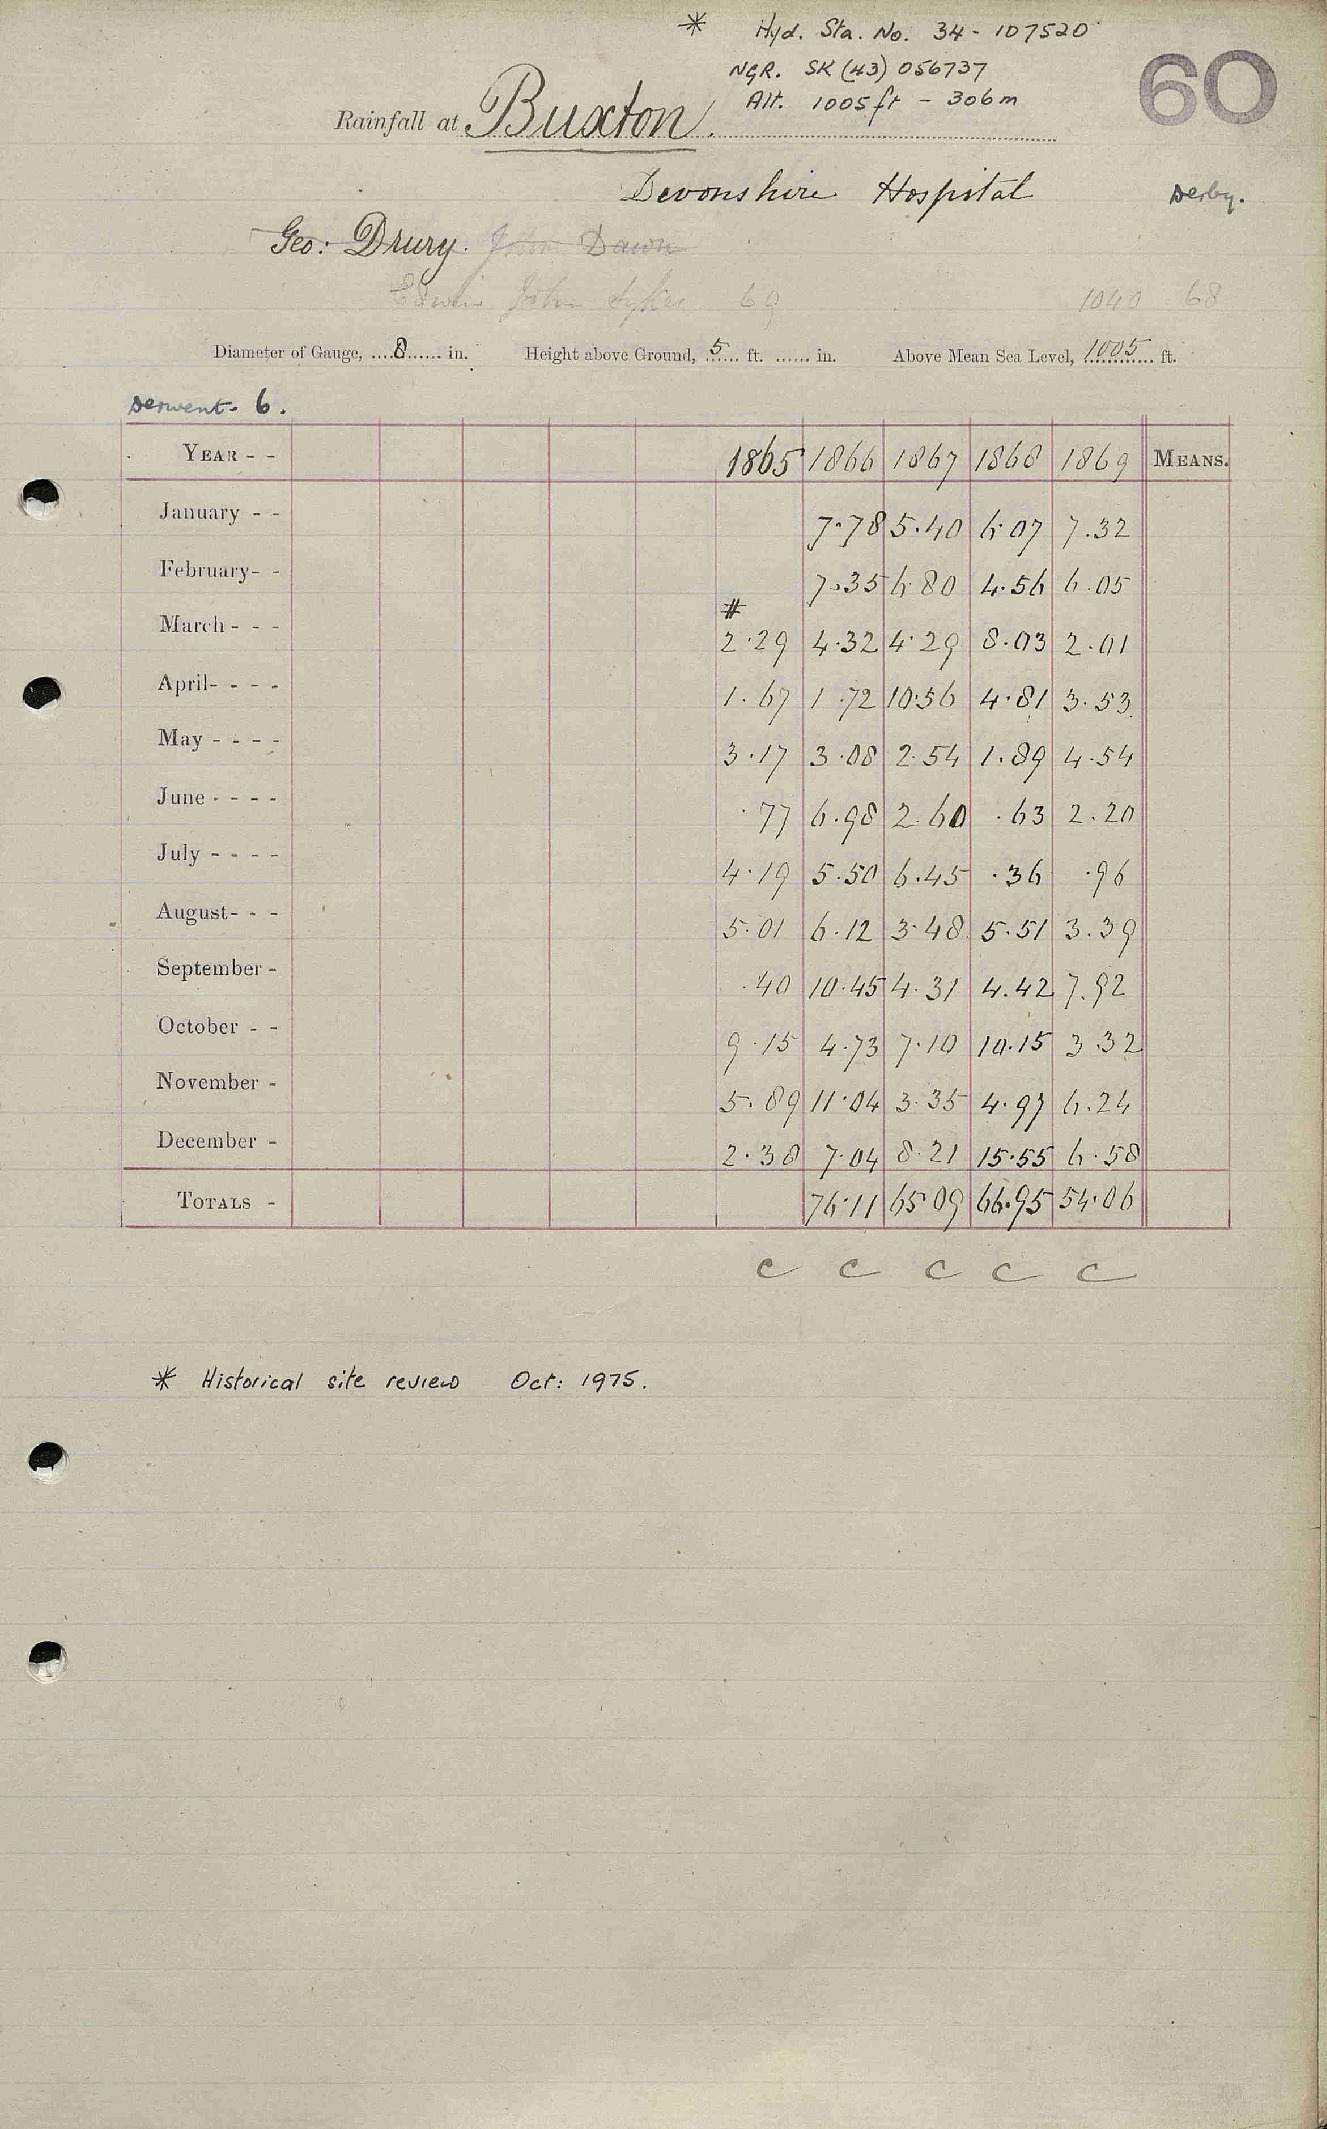 * Hyd. Sta. No. 34 - 107520
NGR. SK (43) 056737
60
Alt. 1005 ft - 306 m
Rainfall at Buxton.
Devonshire Hospital Derby.
Geo: Drury. John Dawn
Edwin John Sykes 69 1040 68
Diameter of Gauge, ....8...... in. Height above Ground, 5 ft. ...... in. Above Mean Sea Level, 1005 ft.
Derwent - 6.
YEAR - - 1865 1866 1867 1868 1869 MEANS.
January - - 7.78 5.40 6.07 7.32
February- - 7.35 6.80 4.56 6.05
#
March - - - 2.29 4.32 4.29 8.03 2.01
April- - - - 1.67 1.72 10.56 4.81 3.53
May - - - - 3.17 3.08 2.54 1.89 4.54
June - - - - .77 6.98 2.60 .63 2.20
July - - - - 4.19 5.50 6.45 .36 .96
August- - - 5.01 6.12 3.48 5.51 3.39
September - .40 10.45 4.31 4.42 7.92
October - - 9.15 4.73 7.10 10.15 3.32
November - 5.89 11.04 3.35 4.97 6.24
December - 2.38 7.04 8.21 15.55 6.58
TOTALS - 76.11 65.09 66.95 54.06
C C C C C
* Historical site review Oct: 1975.